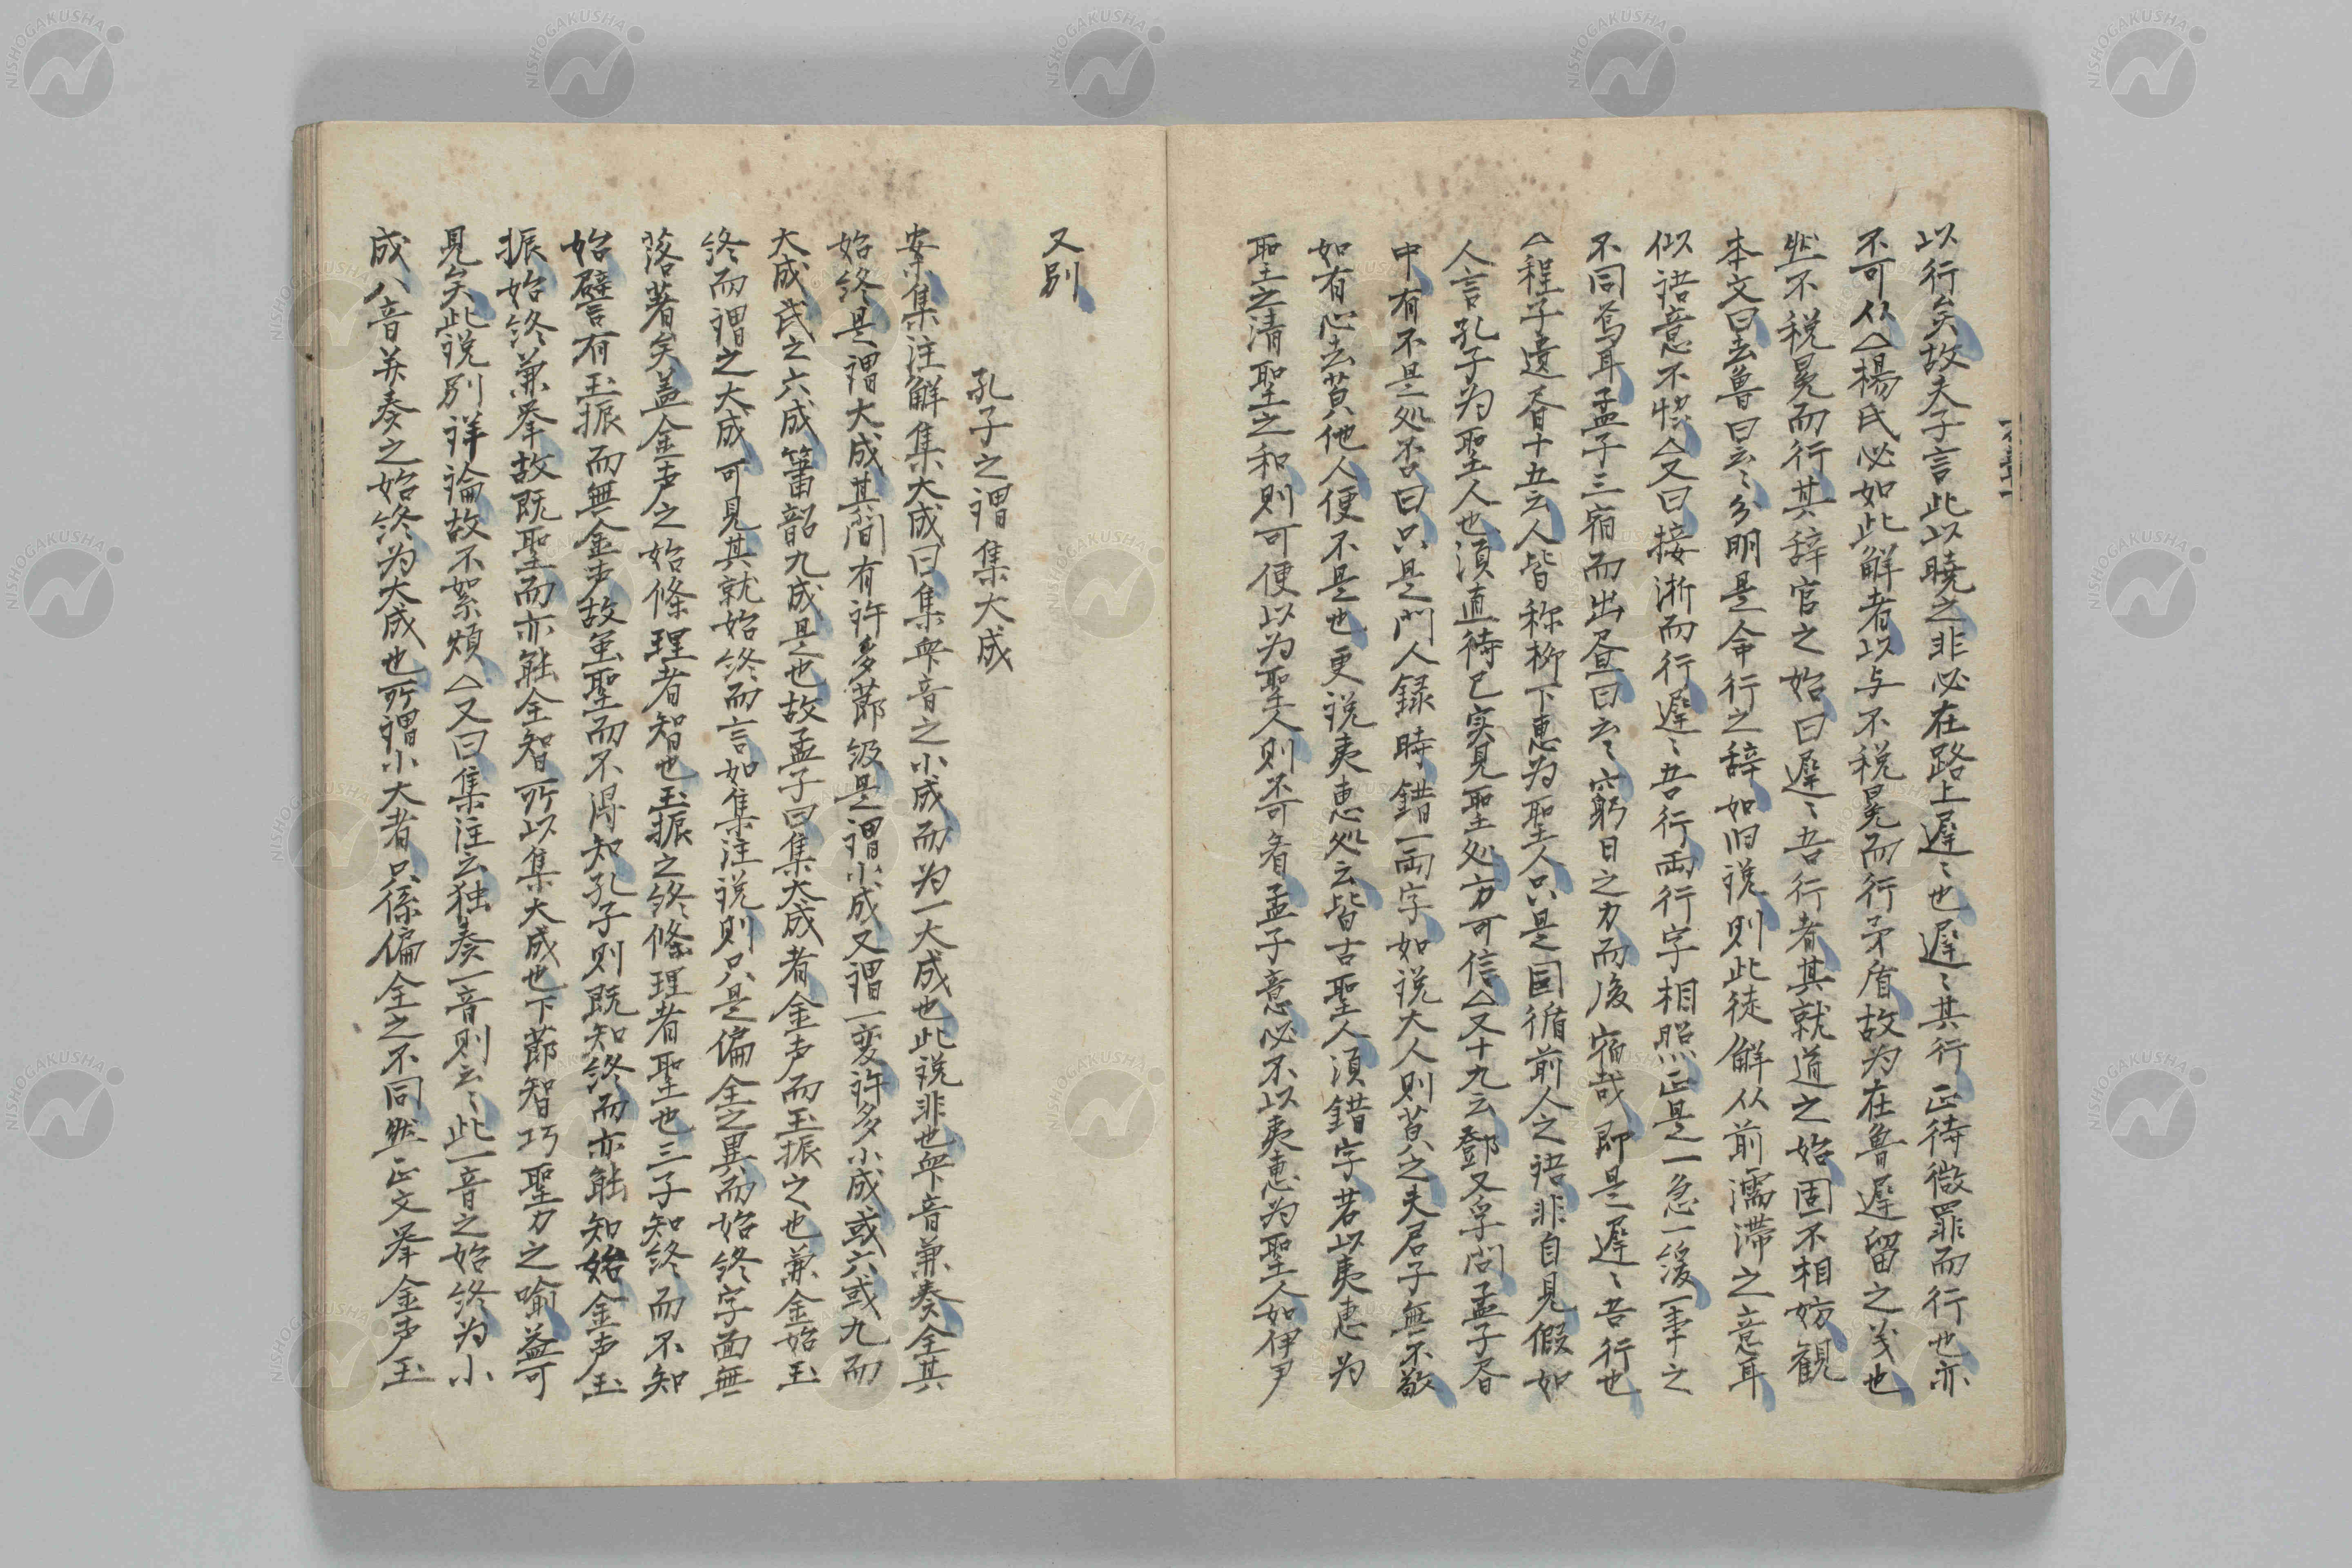 以行矣故夫子言此以曉之非必在路上遲〻也遲〻其行正待微罪而行也亦
不可从△楊氏必如此解者以与不税冕而行矛盾故为在魯遲留之义也
然不税冕而行其辞官之始曰遲〻吾行者其就道之始固不相妨観
本文曰去魯曰云〻分明是命行之辞如旧説則此徒解从前濡滞之意耳
似語意不恊△又曰接淅而行遲〻吾行両行字相照正是一急一緩一事之
不同焉耳孟子三宿而出昼曰云〻窮日之力而後宿哉即是遲〻吾行也
△程子遺書十五云人皆称柳下恵为聖人只是因循前人之語非自見假如
人言孔子为聖人也須直待已实見聖処方可信△又十九云鄧文孚問孟子書
中有不是処否曰只是門人録時錯一両字如説大人則藐之夫君子無不敬
如有心去藐他人便不是也更説夷恵処云皆古聖人須錯字若以夷恵为
聖之清聖之和則可便以为聖人則不可看孟子意必不以夷恵为聖人如伊尹
又別
孔子之謂集大成
案集注解集大成曰集衆音之小成而为一大成也此説非也衆音兼奏全其
始終是謂大成其間有許多節級是謂小成又謂一変許多小成或六或九而
大成武之六成簫韶九成是也故孟子曰集大成者金声而玉振之也兼金始玉
終而謂之大成可見其就始終而言如集注説則只是偏全之異而始終字面無
落著矣盖金声之始條理者智也玉振之終條理者聖也三子知終而不知
始譬有玉振而無金声故虽聖而不得知孔子則既知終而亦能知始金声玉
振始終兼挙故既聖而亦能全智所以集大成也下節智巧聖力之喻益可
見矣此説別詳論故不絮煩△又曰集注云独奏一音則云〻此一音之始終为小
成八音并奏之始終为大成也所謂小大者只係偏全之不同然正文挙金声玉